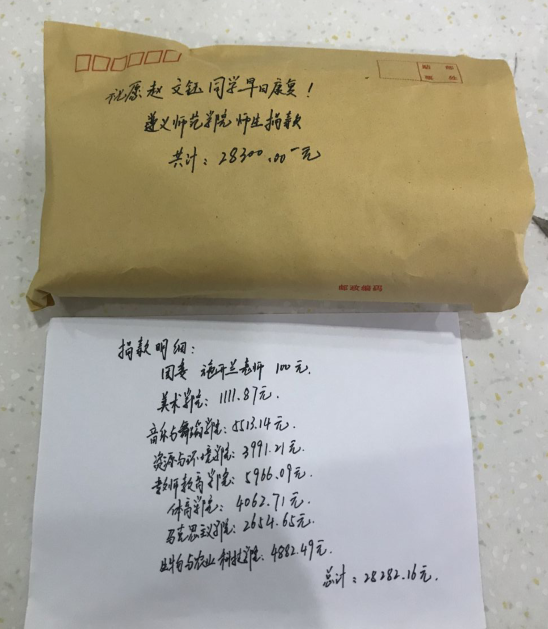 贴 邮
票 处
祝愿赵文钰同学早日康复！
遵义师范学院师生捐款
共计：28300.00元
邮政编码
捐款明细：
团委 施开兰老师 100元.
美术学院：1111.87元.
音乐与舞蹈学院：5513.14元.
资源与环境学院：3991.21元.
教师教育学院：5966.09元.
体育学院：4062.71元.
马克思主义学院：2654.65元.
生物与农业科技学院：4882.49元.
总计：28282.16元.